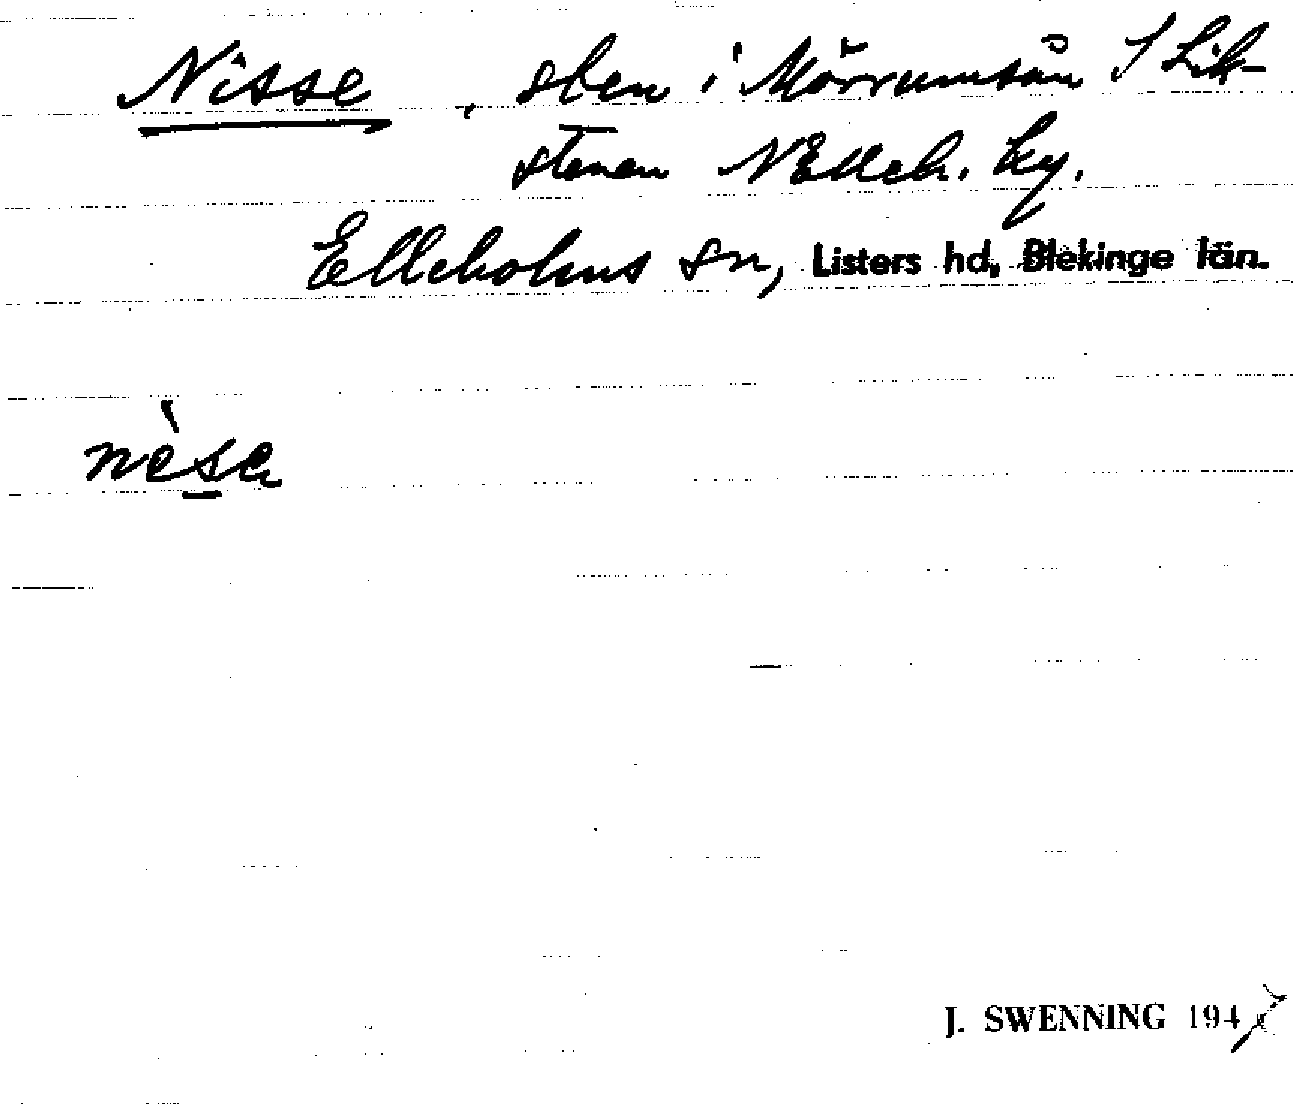 Nisse, sten i Mörrumsån S Lik-
stenen N Elleh. ky.
Elleholms sn, Listers hd, Blekinge län.
nèse
J. SWENNING 1947